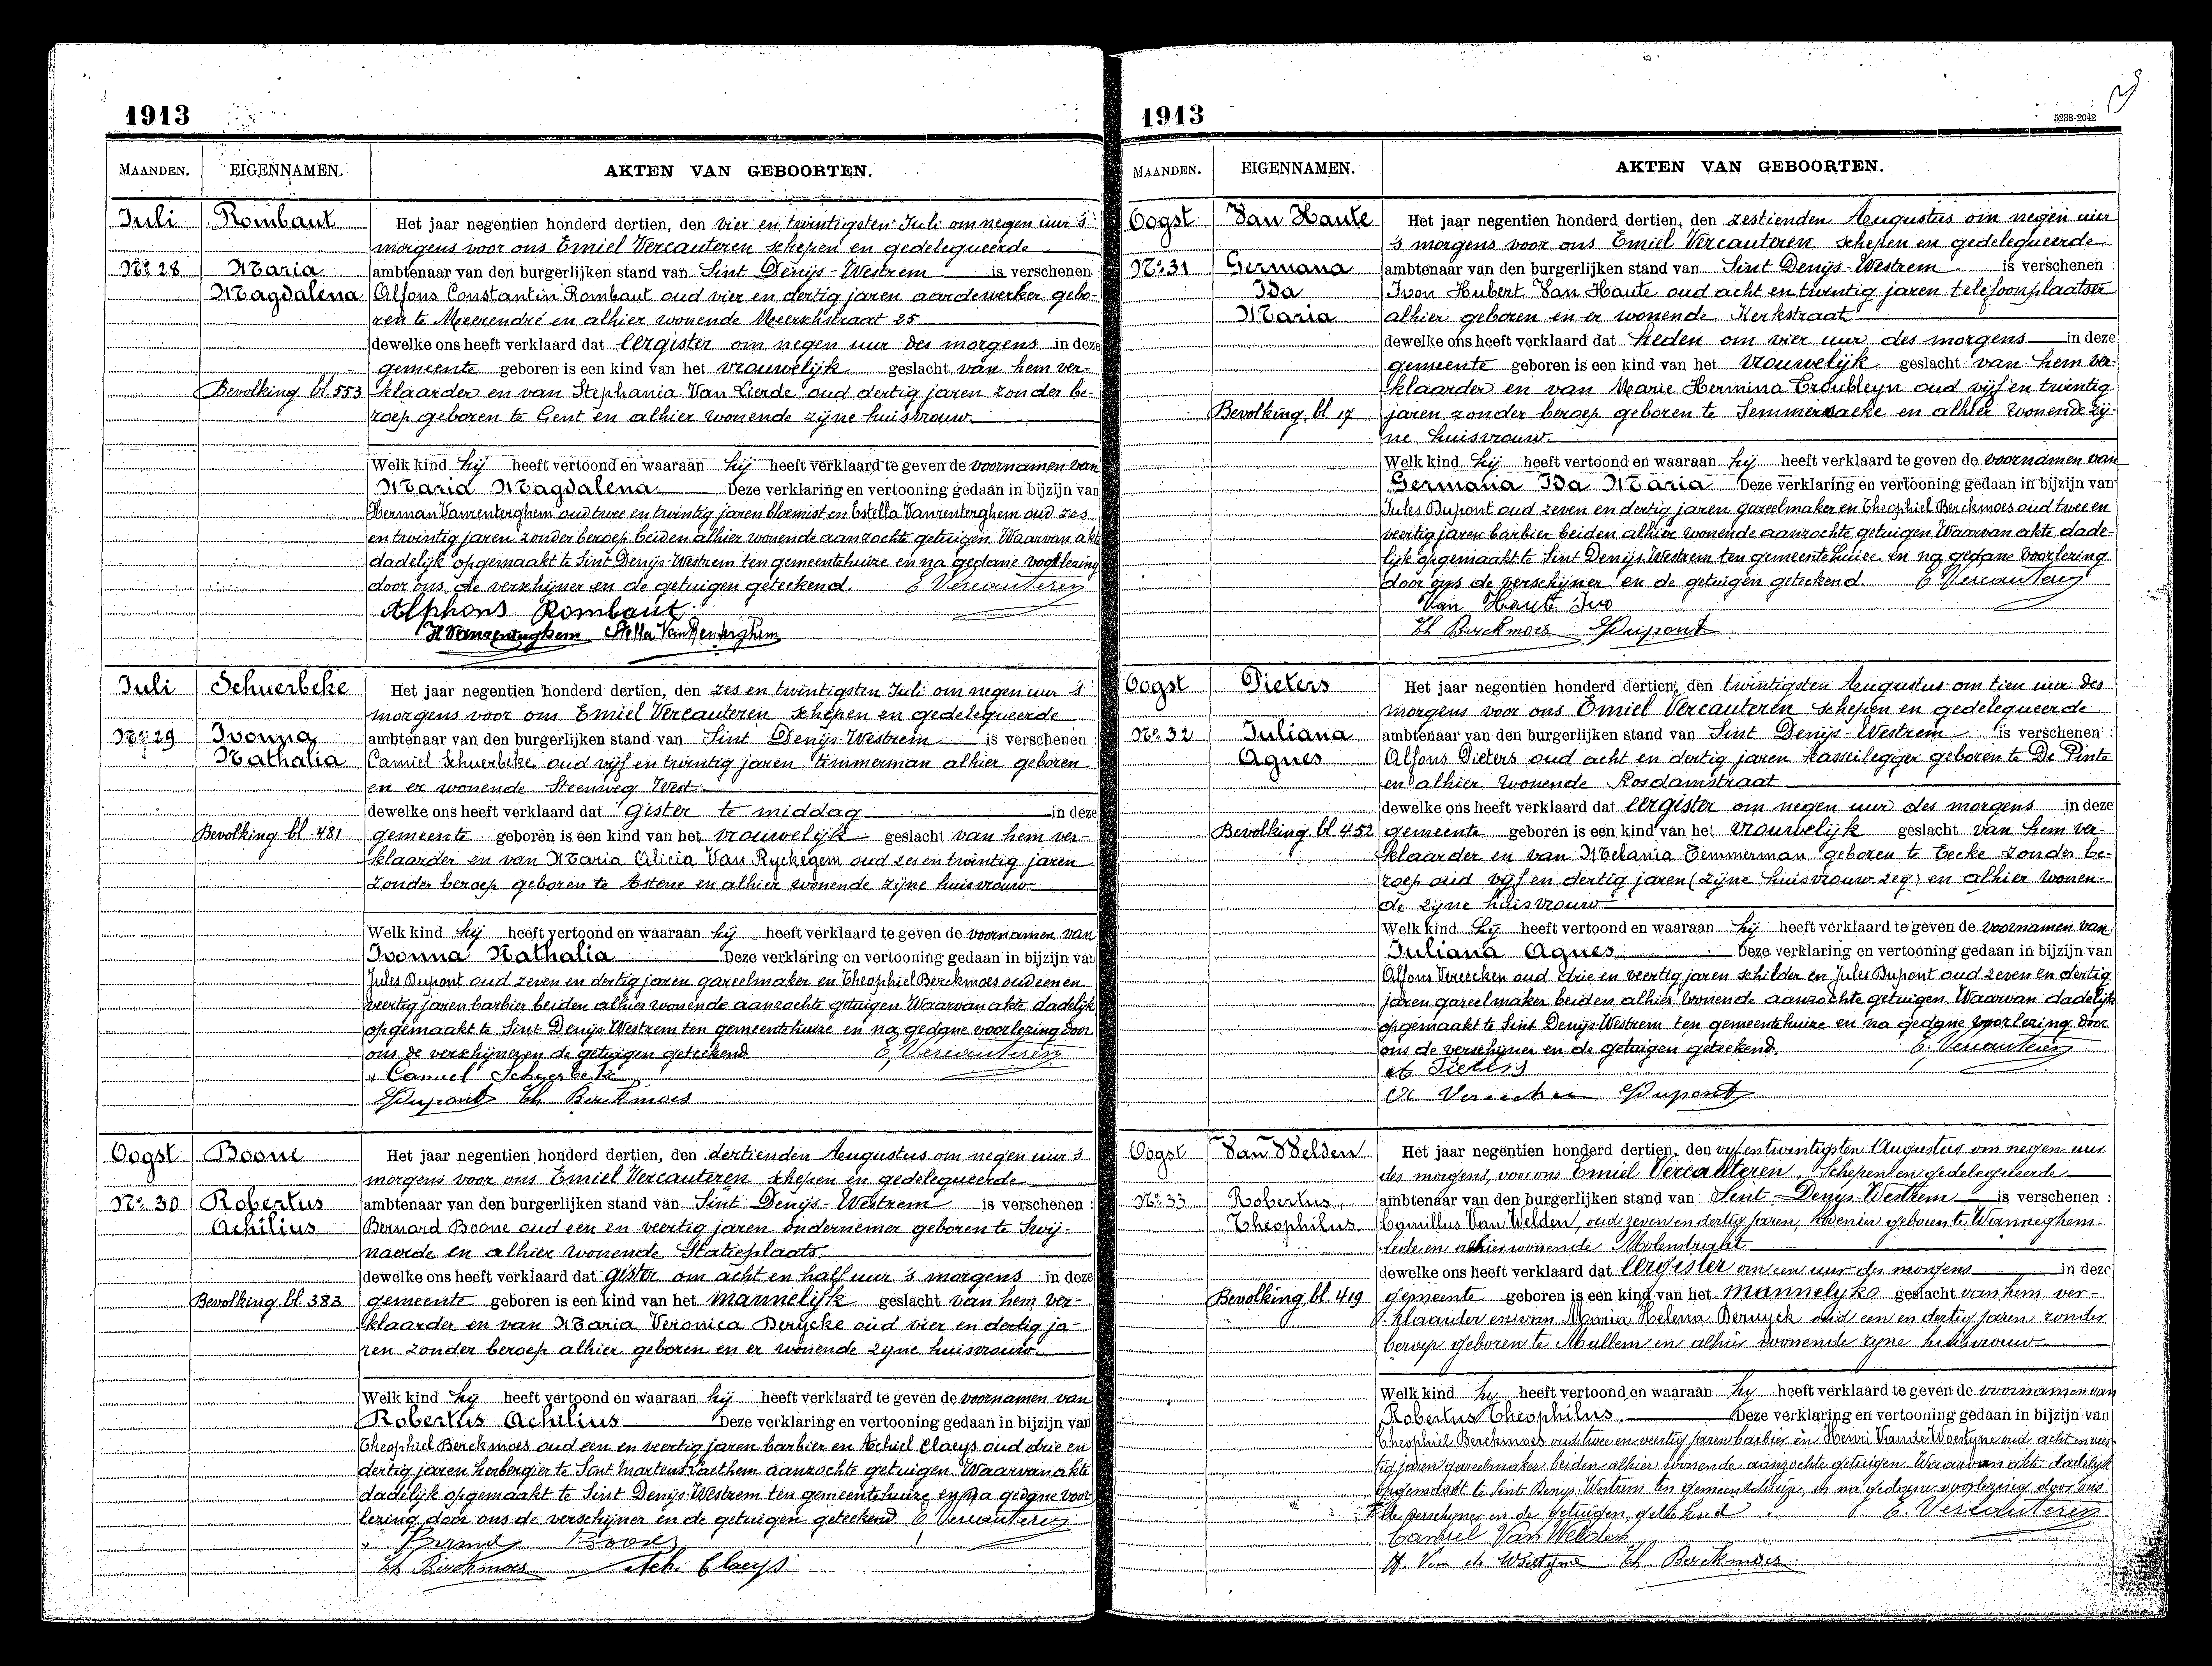 1913
MAANDEN. EIGENNAMEN. AKTEN VAN GEBOORTEN.
Juli Rombaut Het jaar negentien honderd dertien, den vier en twintigsten Juli om negen uur 's
morgens voor ons Emiel Vercauteren schepen en gedelegueerde
No 28 Maria ambtenaar van den burgerlijken stand van Sint Denijs-Westrem is verschenen
Magdalena Alfons Constantin Rombaut oud vier en dertig jaren aardewerker gebo-
ren te Meerendré en alhier wonende Meerschstraat 25
dewelke ons heeft verklaard dat eergister om negen uur des morgens in deze
gemeente geboren is een kind van het vrouwelijk geslacht van hem ver-
Bevolking bl. 553 klaarder en van Stephania Van Lierde oud dertig jaren zonder be-
roep geboren te Gent en alhier wonende zijne huisvrouw.
Welk kind hij heeft vertoond en waaraan hij heeft verklaard te geven de voornamen van
Maria Magdalena Deze verklaring en vertooning gedaan in bijzijn van
Herman Vanrenterghem oud twee en twintig jaren bloemist en Estella Vanrenterghem oud zes
en twintig jaren zonder beroep beiden alhier wonende aanzochte getuigen. Waarvan akt
dadelijk opgemaakt te Sint Denijs-Westrem ten gemeentehuize en na gedane voorlezing
door ons de verschijner en de getuigen geteekend. E Vercauteren
Alphons Rombaut
H Vanrenterghem Stella VanRenterghem
Juli Schuerbeke Het jaar negentien honderd dertien, den zes en twintigsten Juli om negen uur 's
morgens voor ons Emiel Vercauteren schepen en gedelegueerde
No 29 Ivonna ambtenaar van den burgerlijken stand van Sint Denijs-Westrem is verschenen :
Nathalia Camiel Schuerbeke oud vijf en twintig jaren timmerman alhier geboren
en er wonende Steenweg West.
dewelke ons heeft verklaard dat gister te middag in deze
Bevolking bl. 481 gemeente geboren is een kind van het vrouwelijk geslacht van hem ver-
klaarder en van Maria Alicia Van Ryckegem oud zes en twintig jaren
zonder beroep geboren te Astene en alhier wonende zijne huisvrouw
Welk kind hij heeft vertoond en waaraan hij heeft verklaard te geven de voornamen van
Ivonna Nathalia Deze verklaring en vertooning gedaan in bijzijn van
Jules Dupont oud zeven en dertig jaren gareelmaker en Theophiel Berckmoes oud een en
veertig jaren barbier beiden alhier wonende aanzochte getuigen. Waarvan akte dadelijk
opgemaakt te Sint Denijs Westrem ten gemeentehuize en na gedane voorlezing door
ons de verschijner en de getuigen geteekend E, Vercauteren
Camiel Schuerbeke
Dupont Th Berckmoes
Oogst Boone Het jaar negentien honderd dertien, den dertienden Augustus om negen uur 's
morgens voor ons Emiel Vercauteren schepen en gedelegueerde
No 30 Robertus ambtenaar van den burgerlijken stand van Sint Denijs-Westrem is verschenen :
Achilius Bernard Boone oud een en veertig jaren ondernemer geboren te Swij-
naerde en alhier wonende Statieplaats
dewelke ons heeft verklaard dat gister om acht en half uur 's morgens in deze
Bevolking bl. 383 gemeente geboren is een kind van het mannelijk geslacht van hem ver-
klaarder en van Maria Veronica Berycke oud vier en dertig ja-
ren zonder beroep alhier geboren en er wonende zijne huisvrouw.
Welk kind hij heeft vertoond en waaraan hij heeft verklaard te geven de voornamen van
Robertus Achilius Deze verklaring en vertooning gedaan in bijzijn van
Theophiel Berckmoes oud een en veertig jaren barbier en Achiel Claeys oud drie en
dertig jaren herbergier te Sint Martens Laethem aanzochte getuigen. Waarvan akte
dadelijk opgemaakt te Sint Denijs-Westrem ten gemeentehuize en na gedane voor
lezing door ons de verschijner en de getuigen geteekend E Vercauteren
Th Berckmoes Ach. Claeys
1913
5238-2042
MAANDEN. EIGENNAMEN. AKTEN VAN GEBOORTEN.
Oogst Van Haute Het jaar negentien honderd dertien, den zestienden Augustus om negen uur
's morgens voor ons Emiel Vercauteren schepen en gedelegueerde
No 31 Germana ambtenaar van den burgerlijken stand van Sint Denijs-Westrem is verschenen
Ida Ivon Hubert Van Haute oud acht en twintig jaren telefoonplaatser
Maria alhier geboren en er wonende Kerkstraat
dewelke ons heeft verklaard dat heden om vier uur des morgens in deze
gemeente geboren is een kind van het vrouwelijk geslacht van hem ver-
klaarder en van Marie Hermina Troubleyn oud vijf en twintig
Bevolking bl. 17 jaren zonder beroep geboren te Semmersaeke en alhier wonende zij-
ne huisvrouw.
Welk kind hij heeft vertoond en waaraan hij heeft verklaard te geven de voornamen van
Germana Ida Maria Deze verklaring en vertooning gedaan in bijzijn van
Jules Dupont oud zeven en dertig jaren gareelmaker en Theophiel Berckmoes oud twee en
veertig jaren barbier beiden alhier wonende aanzochte getuigen. Waarvan akte dade-
lijk opgemaakt te Sint Denijs-Westrem ten gemeentehuize en na gedane voorlezing
door ons de verschijner en de getuigen geteekend. E Vercauteren
Van Haute Ivo
Th Berckmoes Dupont
Oogst Pieters Het jaar negentien honderd dertien, den twintigsten Augustus om tien uur des
morgens voor ons Emiel Vercauteren schepen en gedelegueerde
No 32 Juliana ambtenaar van den burgerlijken stand van Sint Denijs-Westrem is verschenen :
Agnes Alfons Pieters oud acht en dertig jaren kasseilegger geboren te De Pinte
en alhier wonende Rosdamstraat
dewelke ons heeft verklaard dat eergister om negen uur des morgens in deze
Bevolking bl. 452 gemeente geboren is een kind van het vrouwelijk geslacht van hem ver-
klaarder en van Melania Temmerman geboren te Eecke zonder be-
roep oud vijf en dertig jaren (zijne huisvrouw zeg) en alhier wonen-
de zijne huisvrouw
Welk kind hij heeft vertoond en waaraan hij heeft verklaard te geven de voornamen van
Juliana Agnes Deze verklaring en vertooning gedaan in bijzijn van
Alfons Vereecken oud drie en veertig jaren schilder en Jules Dupont oud zeven en dertig
jaren gareelmaker beiden alhier wonende aanzochte getuigen. Waarvan dadelijk
opgemaakt te Sint Denijs-Westrem ten gemeentehuize en na gedane voorlezing door
ons de verschijner en de getuigen geteekend. E. Vercauteren
A Pieters
Dupont
Oogst Van Welden Het jaar negentien honderd dertien, den vyfentwintigsten Augustus om negen uur
des morgens, voor ons Emiel Vercauteren, Schepen en gedelegueerde
No 33 Robertus, ambtenaar van den burgerlijken stand van Sint Denys-Westrem is verschenen :
Theophilus Camillus Van Welden, oud zeven en dertig jaren, hovenier geboren te Wannegem-
Lede en alhier wonende Molenstraat
dewelke ons heeft verklaard dat eergister om een uur des morgens in deze
Bevolking bl. 419 gemeente geboren is een kind van het mannelyke geslacht van hem ver-
klaarder en van Maria Helena Deruyck oud een en dertig jaren zonder
beroep geboren te Moullem en alhier wonende zyne huisvrouw
Welk kind hy heeft vertoond en waaraan hy heeft verklaard te geven de voornamen van
Robertus Theophilus. Deze verklaring en vertooning gedaan in bijzijn van
Theophiel Berckmoes oud twee en veertig jaren barbier en Henri Van de Woestyne oud acht en veer-
tig jaren gareelmaker beiden alhier wonende aanzochte getuigen. Waarvan akte dadelyk
opgemaakt te Sint Denys-Westrem ten gemeentehuize, en na gedane voorlezing door ons
de verschyner en de getuigen geteekend. E. Vercauteren
Camiel Van Welden
H. Van de Woestyne Th Berckmoes